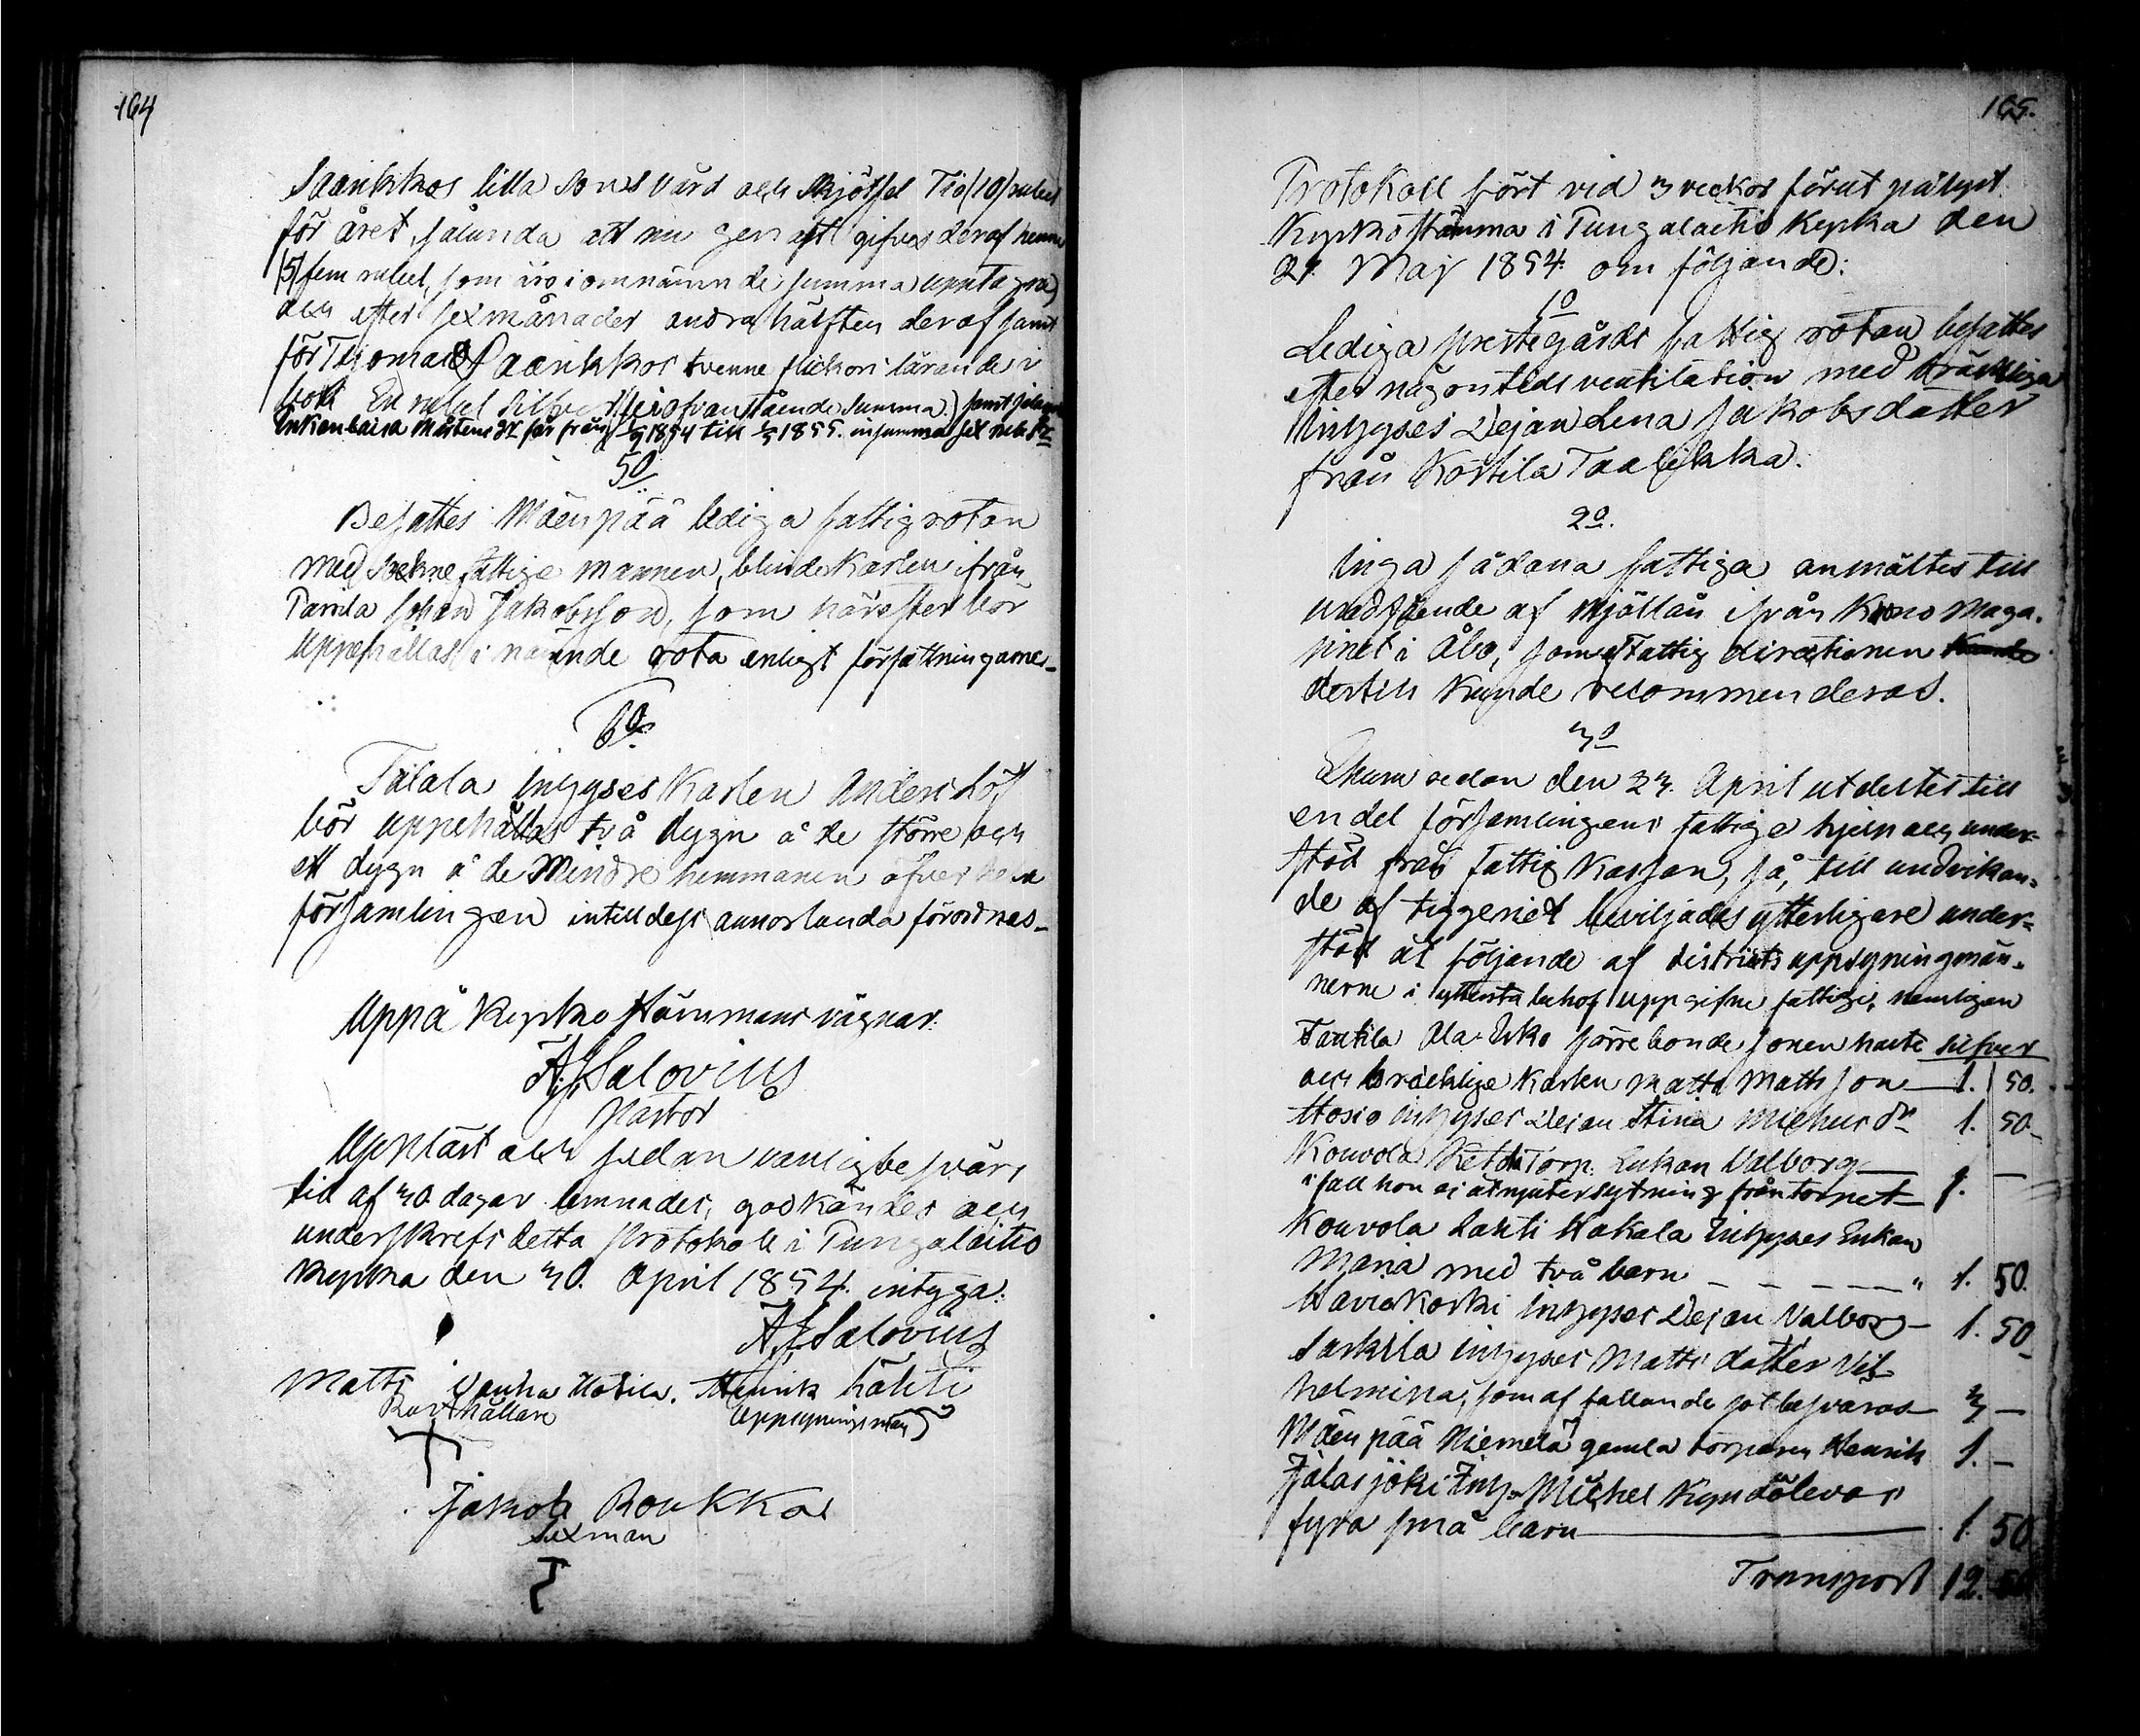 164
Saarikkos lilla sons vård och skjötsel Tio (10) rubel
för året, sålunda att nu genast gifves deraf henne
(5) fem rubel, som äro i omnämnde summa upptagna
och efter sex månader andra hälften deraf samt
för Saarikkos tvenne flickors lärande i
bok En rubel silfver
Enkan Caisa Mårtens dr får från 1854 till 1855. in summa sex rub. Sr
5o
Besattes Mäenpää lediga fattigrotan
med sockne fattige mannen, blinde Karlen ifrån
Panila Johan Jakobsson, som härefter bör
uppehållas i nämnde rota enligt författningarne.
6o
Talala Inhyses Karlen Anders Löf
bör uppehållas två dygn å de större och
ett dygn å de Mindre hemmanen öfver hela
församlingen intilldess annorlunda förordnas.
Uppå Kyrkostämmans vägnar:
A.J. Salovius
Pastor
Uppläst och sedan vanlig besvärs
tid af 30 dagar lemnades, godkändes och
underskrefs detta Protokoll i Pungalaitio
kyrka den 30. April 1854. intyga:
A J Salovius
Matts Vanha Hotila. Henrik Lähti
Rusthållare Uppsyningsman
Jakob Roukka
Sexman
165.
Protokoll fört vid 3 veckor förut pålyst
Kyrkostämma i Pungalaitio Kyrka den
21. Maj 1854. om följande:
1o
Lediga prestegårds fattig rotan besattes
efter någon tids ventilation med bräckliga
Inhyses Pejan Lena Jakobsdotter
från Kostila Taalikka.
2o.
Inga sådana fattiga anmältes till
undfående af mjöllån ifrån Krono Maga-
sinet i Åbo, som af Fattig directionen
dertill kunde recommenderas.
3o
Ehuru sedan den 23. April utdeltes till
en del församlingens fattige hjelp och under-
stöd från Fattig Kassan, så, till undvikan-
de af tiggeriet beviljades ytterligare under-
stöd åt följande af districts uppsyningmän-
nerne i yttersta behof uppgifne fattige, nemligen
Tautila Ala-Uko förre bonde sonen halte silfver
och bräcklige Karlen Matts Mattsson 1. 50.
Hosio Inhyses Pejan Stina Michus dr 1. 50.
Kouvola Torp. Enkan Valborg
ifall hon ej åtnjuter sytning från torpet 1. —
Kouvola Lahti Hakala Inhyses Enkan
Maria med två barn — — — — " 1. 50.
Haviokoski Inhyses Pejan Valborg 1. 50
Sarkila Inhyses Matts dotter Vil-
helmina, som af fallande sot besväras 3 —
Mäenpää Niemelä gamla torparen Henrik 1. —
Jalasjöki Inh. Michel Kyndölevas
fyra små barn 1. 50
Transport 12. 50